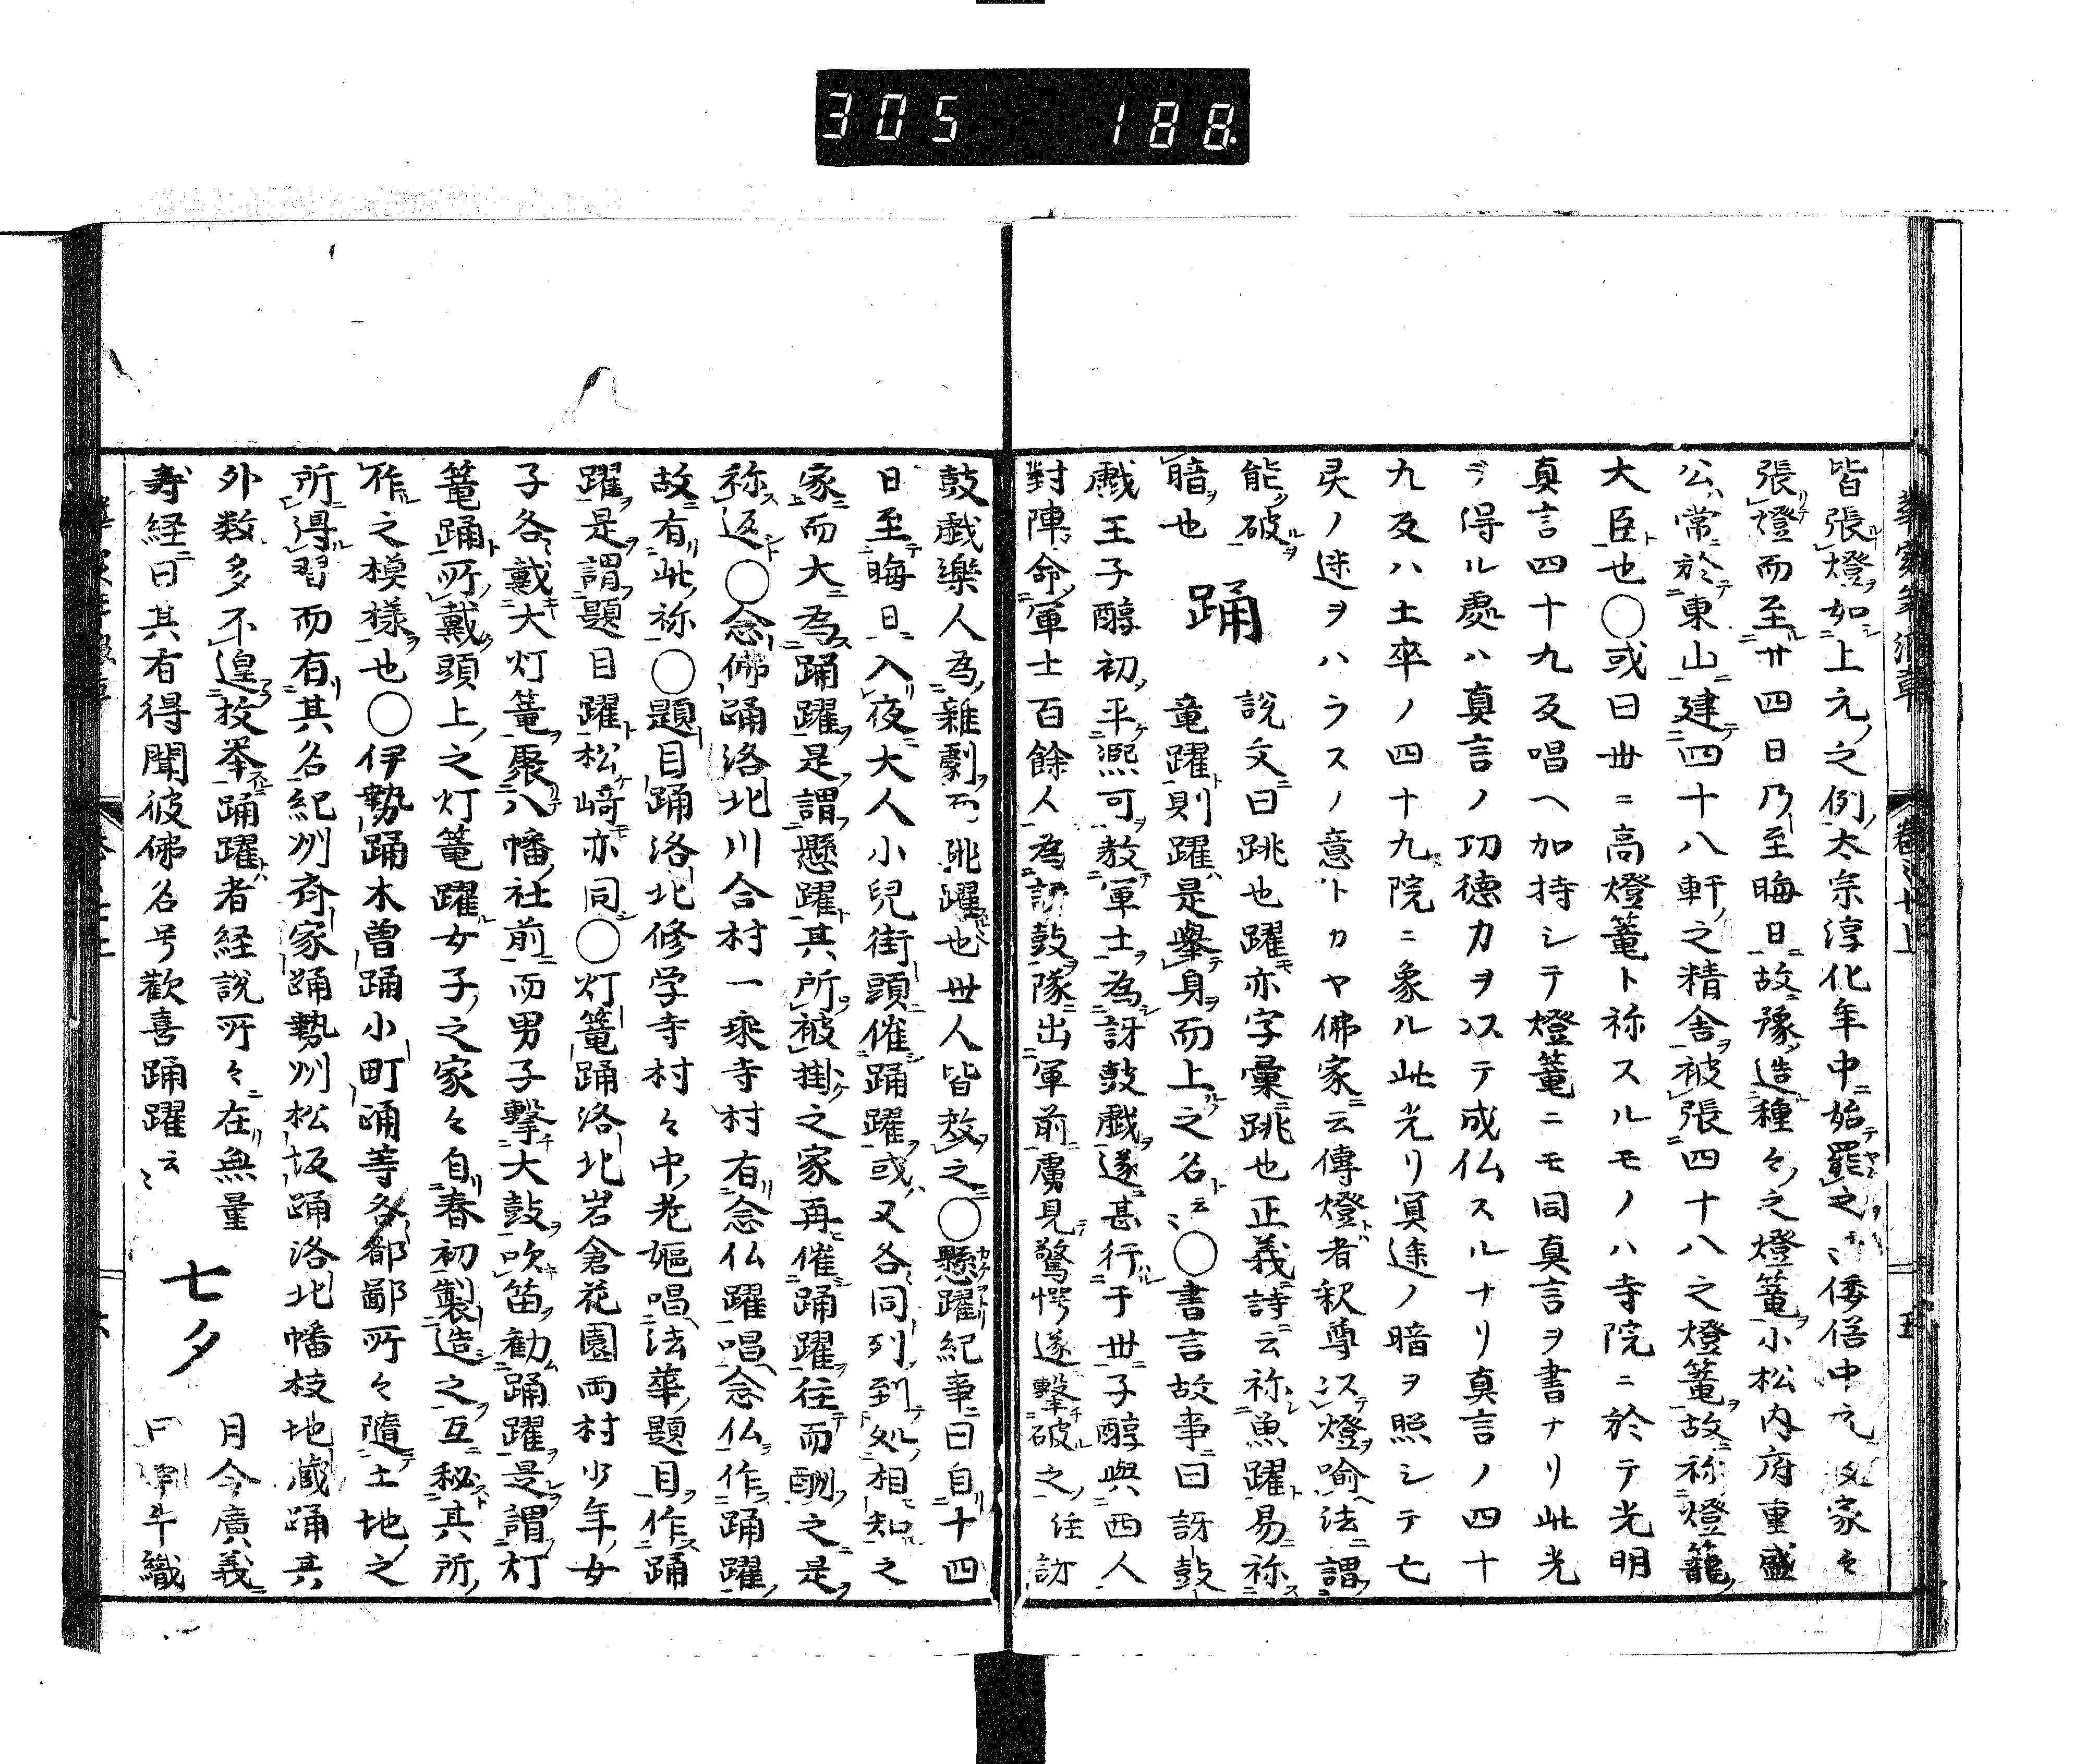 305 188.
皆張燈如上元之例太宗淳化年中始罷之〻倭俗中元家々
張燈而至廿四日乃至晦日故豫造種々之燈篭小松内府重盛
公常於東山建四十八軒之精舎被張四十八之燈篭故祢燈籠
大臣也〇或曰世ニ高燈篭ト祢スルモノハ寺院ニ於テ光明
真言四十九反唱ヘ加持シテ燈篭ニモ同真言ヲ書ナリ此光
ヲ得ル處ハ真言ノ功徳力ヲ以テ成仏スルナリ真言ノ四十
九反ハ土卒ノ四十九院ニ象ル此光リ冥途ノ暗ヲ照シテ七
灵ノ迷ヲハラスノ意トカヤ佛家云傳燈者釈尊以燈喩法謂
能破
暗也
踊
説文曰跳也躍亦字彙跳也正義詩云祢魚躍易祢
竜躍則躍是擧身而上之名云〻〇書言故事曰訝鼓
戯王子醇初平熈可教軍士為訝鼓戯遂甚行于世子醇與西人
對陣命軍士百餘人為訝鼓隊出軍前虜見驚愕遂擊破之任訝
鼓戯樂人為雜劇而跳躍也世人皆效之〇懸躍紀事曰自十四
日至晦日入夜大人小兒街頭催踊躍或又各同列到処相知之
家而大為踊躍是謂懸躍其所被掛之家再催踊躍往而酬之是
祢返〇念佛踊洛北川合村一乘寺村有念仏躍唱念仏作踊躍
故有此祢〇題目踊洛北修学寺村々中老嫗唱法華題目作踊
躍是謂題目躍松﨑亦同〇灯篭踊洛北岩倉花園両村少年女
子各戴大灯篭聚八幡社前而男子擊大鼓吹笛勧踊躍是謂灯
篭踊所戴頭上之灯篭躍女子之家々自春初製造之互秘其所
作之模様也〇伊勢踊木曽踊小町踊等各都鄙所々隨土地之
所得習而有其名紀州斉家踊勢州松坂踊洛北幡枝地蔵踊其
外数多不遑枚挙踊躍者経説所々在無量
寿経曰其有得聞彼佛名号歓喜踊躍云〻
七夕
月令廣義
曰牽牛織